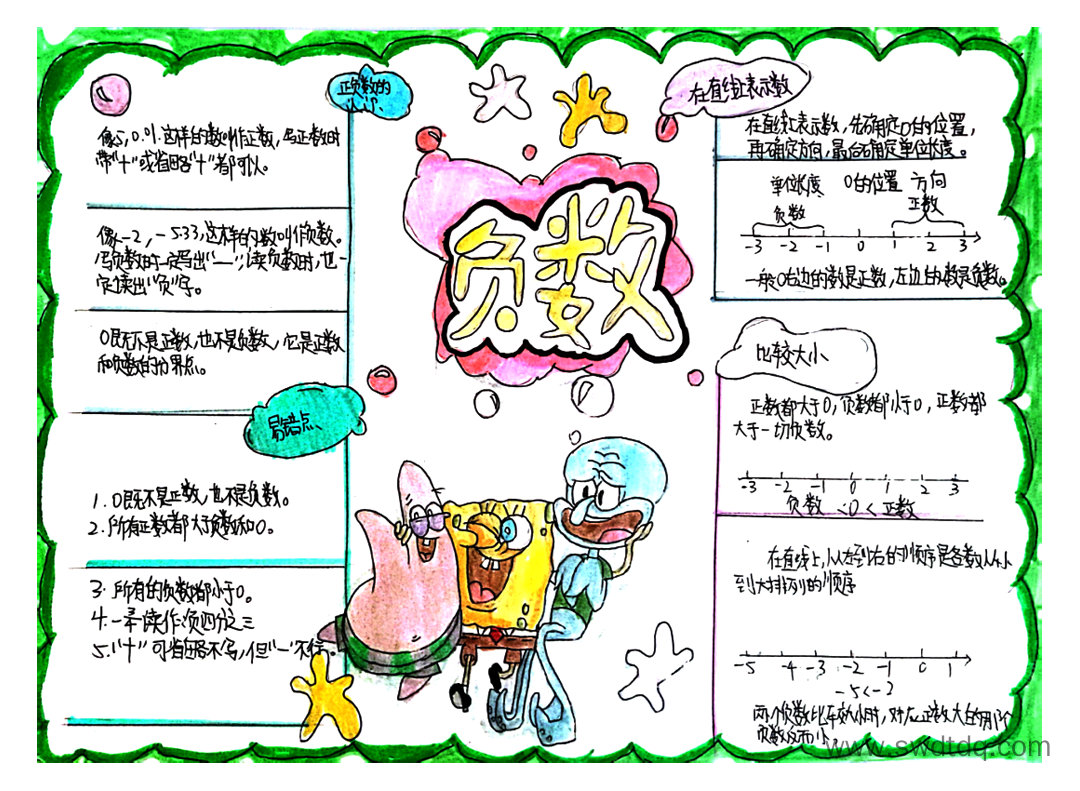 正负数的
认识
像5,0.01这样的数叫作正数,写正数时
带“+”或省略“+”都可以。
像-2,-533,这样的数叫作负数。
写负数时一定写出“—”;读负数时,也一
定读出“负”字。
0既不是正数,也不是负数,它是正数
和负数的分界点。
易错点
1.0既不是正数,也不是负数。
2.所有正数都大于负数和0。
3.所有的负数都小于0。
4.读作:负四分之三
5.“+”可省略不写,但“—”不行。
负数
在直线上表示数
在直线上表示数,先确定0的位置,
再确定方向,最后确定单位长度。
单位长度 0的位置 方向
负数 正数
-3 -2 -1 0 1 2 3
一般0右边的数是正数,左边的数是负数。
比较大小
正数都大于0,负数都小于0,正数都
大于一切负数。
-3 -2 -1 0 1 2 3
负数 <0< 正数
在直线上,从左到右的顺序是各数从小
到大排列的顺序
-5 -4 -3 -2 -1 0 1
-5<-2
两个负数比较大小时,对应正数大的那个
负数反而小
www.swdtdq.com